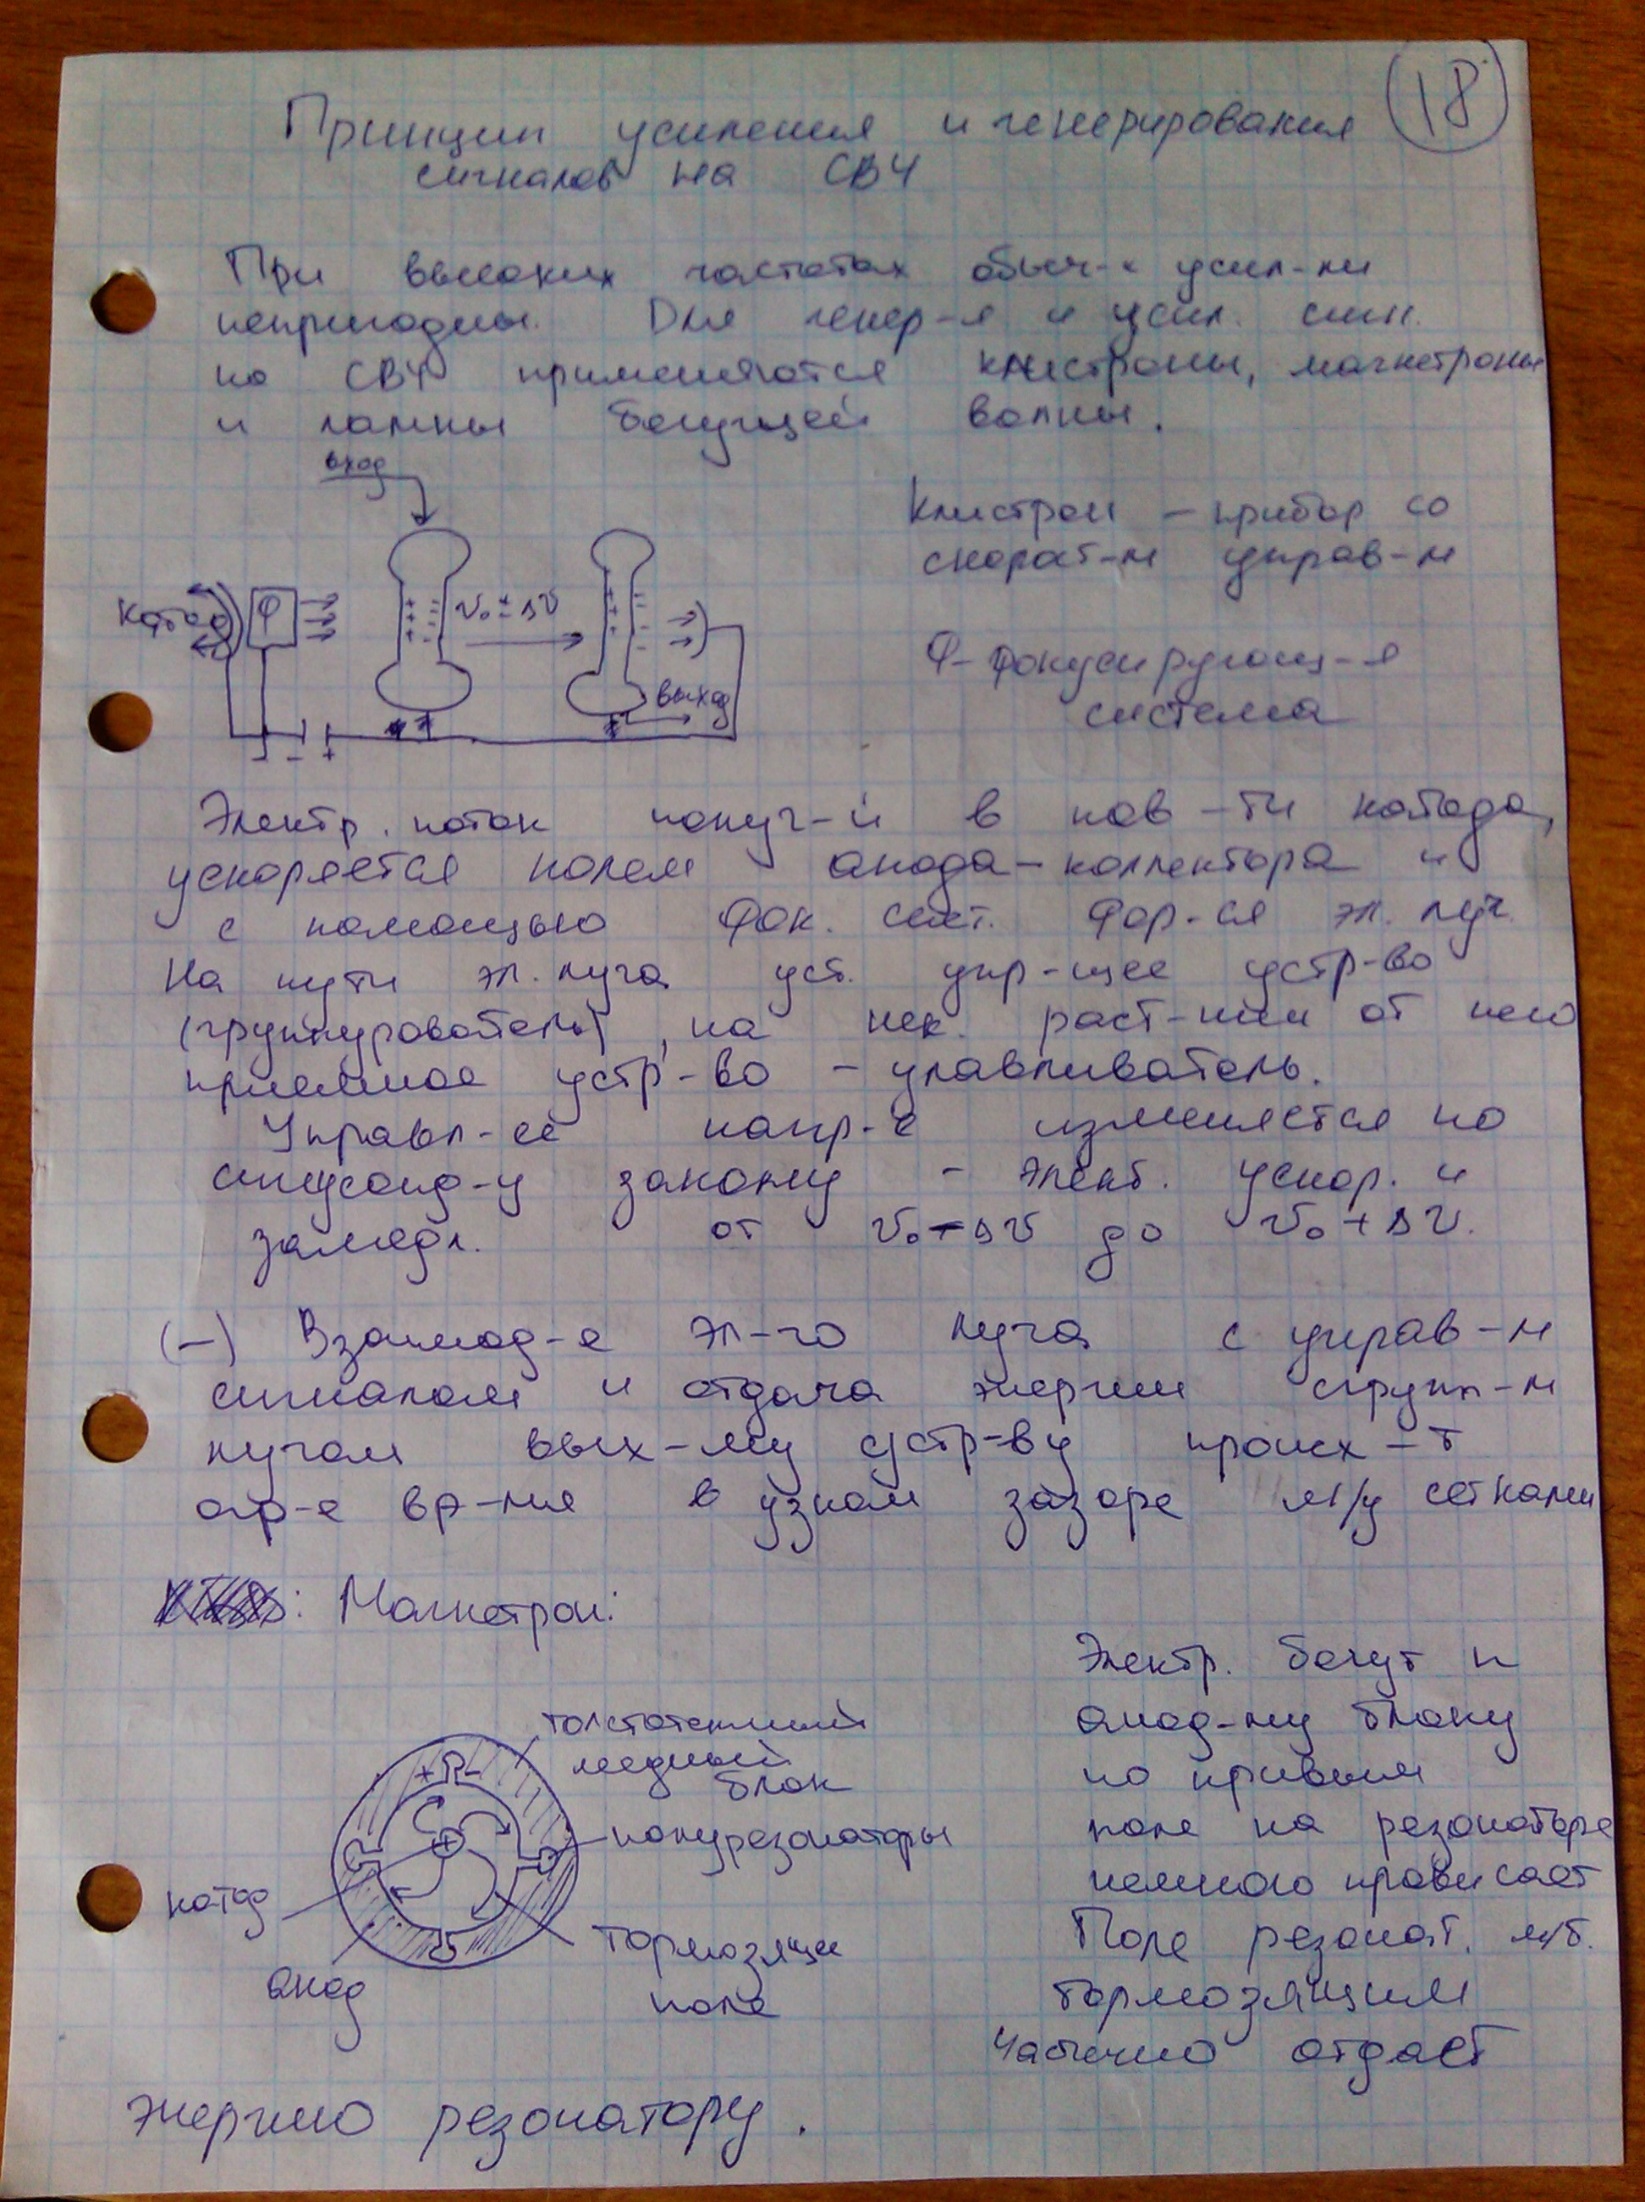 18
Принцип усиления и генерирования
сигналов на СВЧ
При высоких частотах обыч-е усил-ли
непригодны. Для генер-я и усил. сигн.
на СВЧ применяются клистроны, магнетроны
и лампы бегущей волны.
вход
Клистрон – прибор со
скорост-м управ-м
Катод Ф v₀ ± Δv
Ф – фокусирующ-я
система
выход
- +
Электр. поток получ-й в пов-ти катода,
ускоряется полем анода-коллектора и
с помощью Фок. сист. Фор-ся эл. луч.
На пути эл. луча уст. упр-щее устр-во
(группирователь), на нек. раст-нии от него
приемное устр-во – улавливатель.
Управл-ее напр-е изменяется по
синусоид-у закону – элект. ускор. и
замедл. от v₀-Δv до v₀+Δv.
(–) Взаимод-е эл-го луча с управ-м
сигналом и отдача энергии сгрупп-м
лучом вых-му устр-ву происх-т
огр-е вр-мя в узком зазоре м/у сетками
: Магнетрон:
толстотенный
медный
блок
полурезонаторы
катод
анод
тормозящее
поле
Электр. бегут к
анод-му блоку
по кривым
поле на резонаторе
немного провисает
Поле резонат. м/б.
тормозящим
Частично отдает
энергию резонатору.